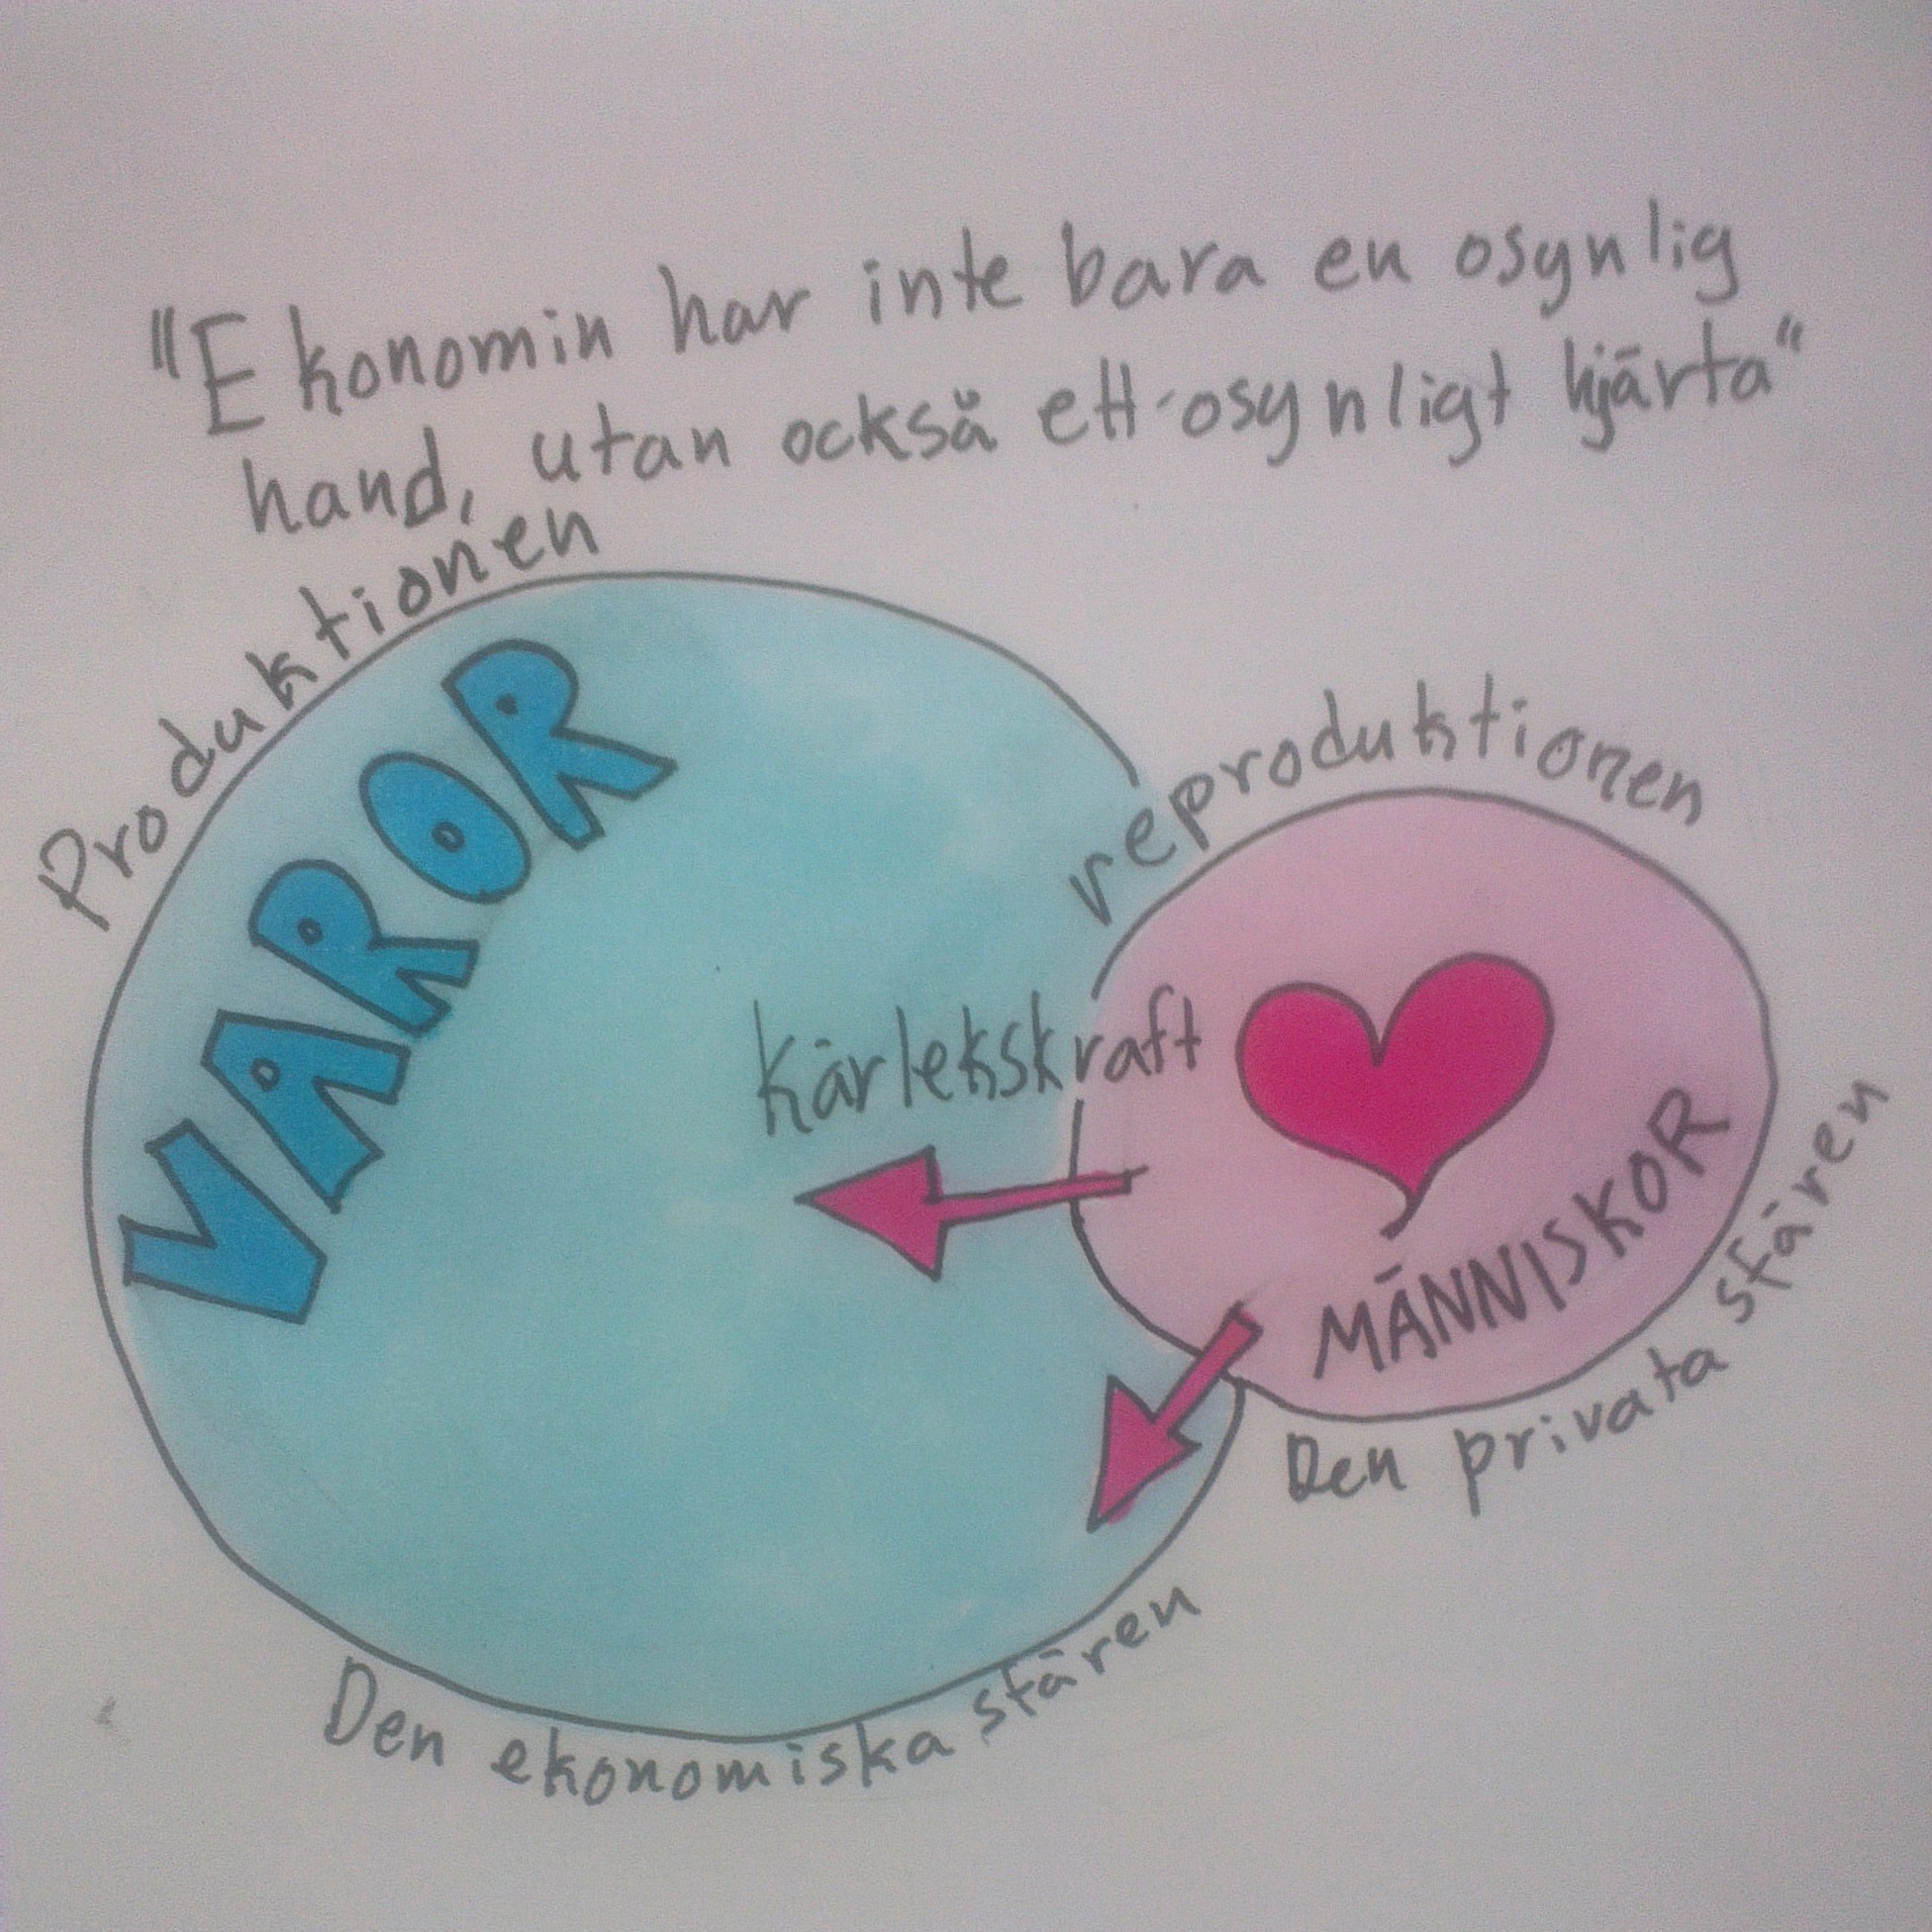 "Ekonomin har inte bara en osynlig
hand, utan också ett osynligt hjärta"
Produktionen
VAROR
reproduktionen
kärlekskraft
MÄNNISKOR
Den privata sfären
Den ekonomiska sfären